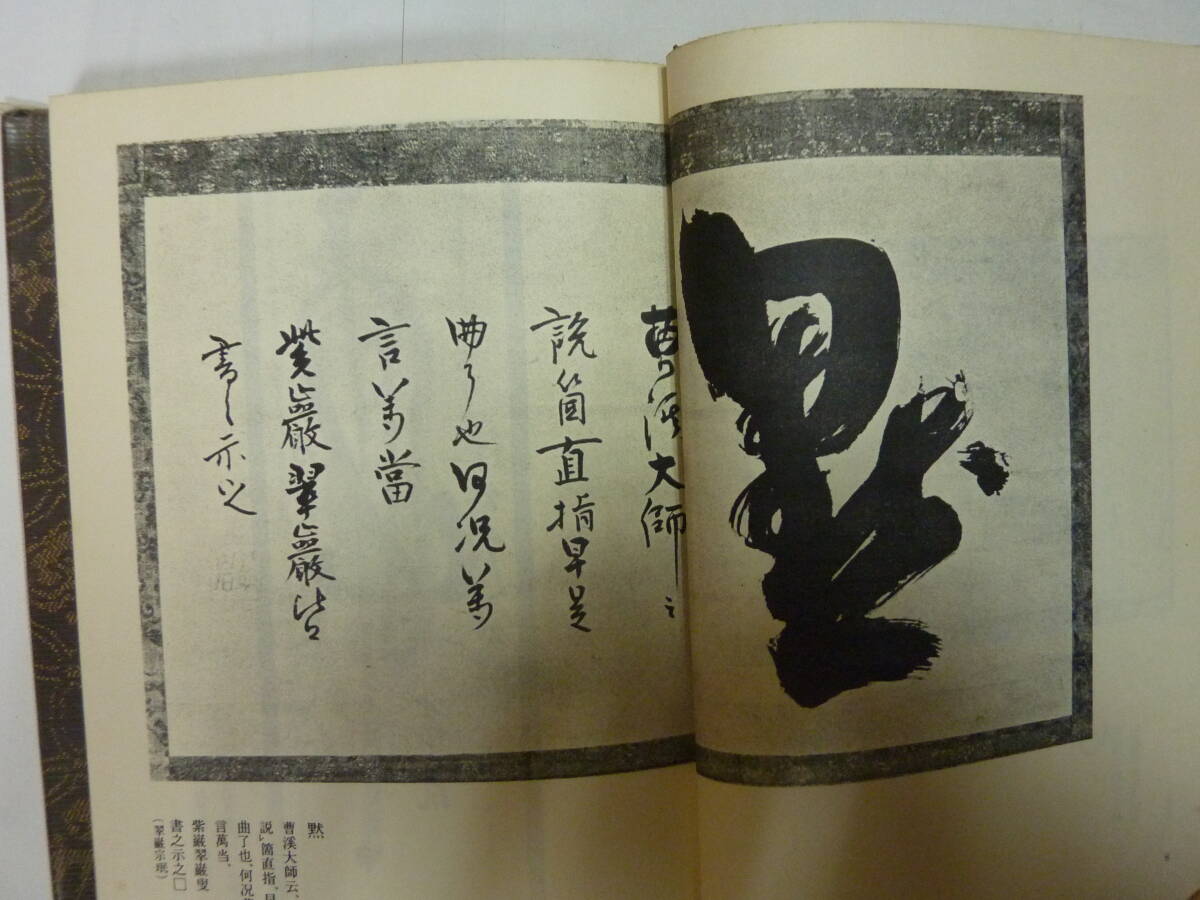 黙
曹溪大師云
説箇直指早是
曲了也何况萬
言萬當
紫巖翠巖叟
書之示之
黙
曹溪大師云、
説、箇直指、早
曲了也、何况
言萬当、
紫巖翠巖叟
書之示之□
（翠巖宗珉）